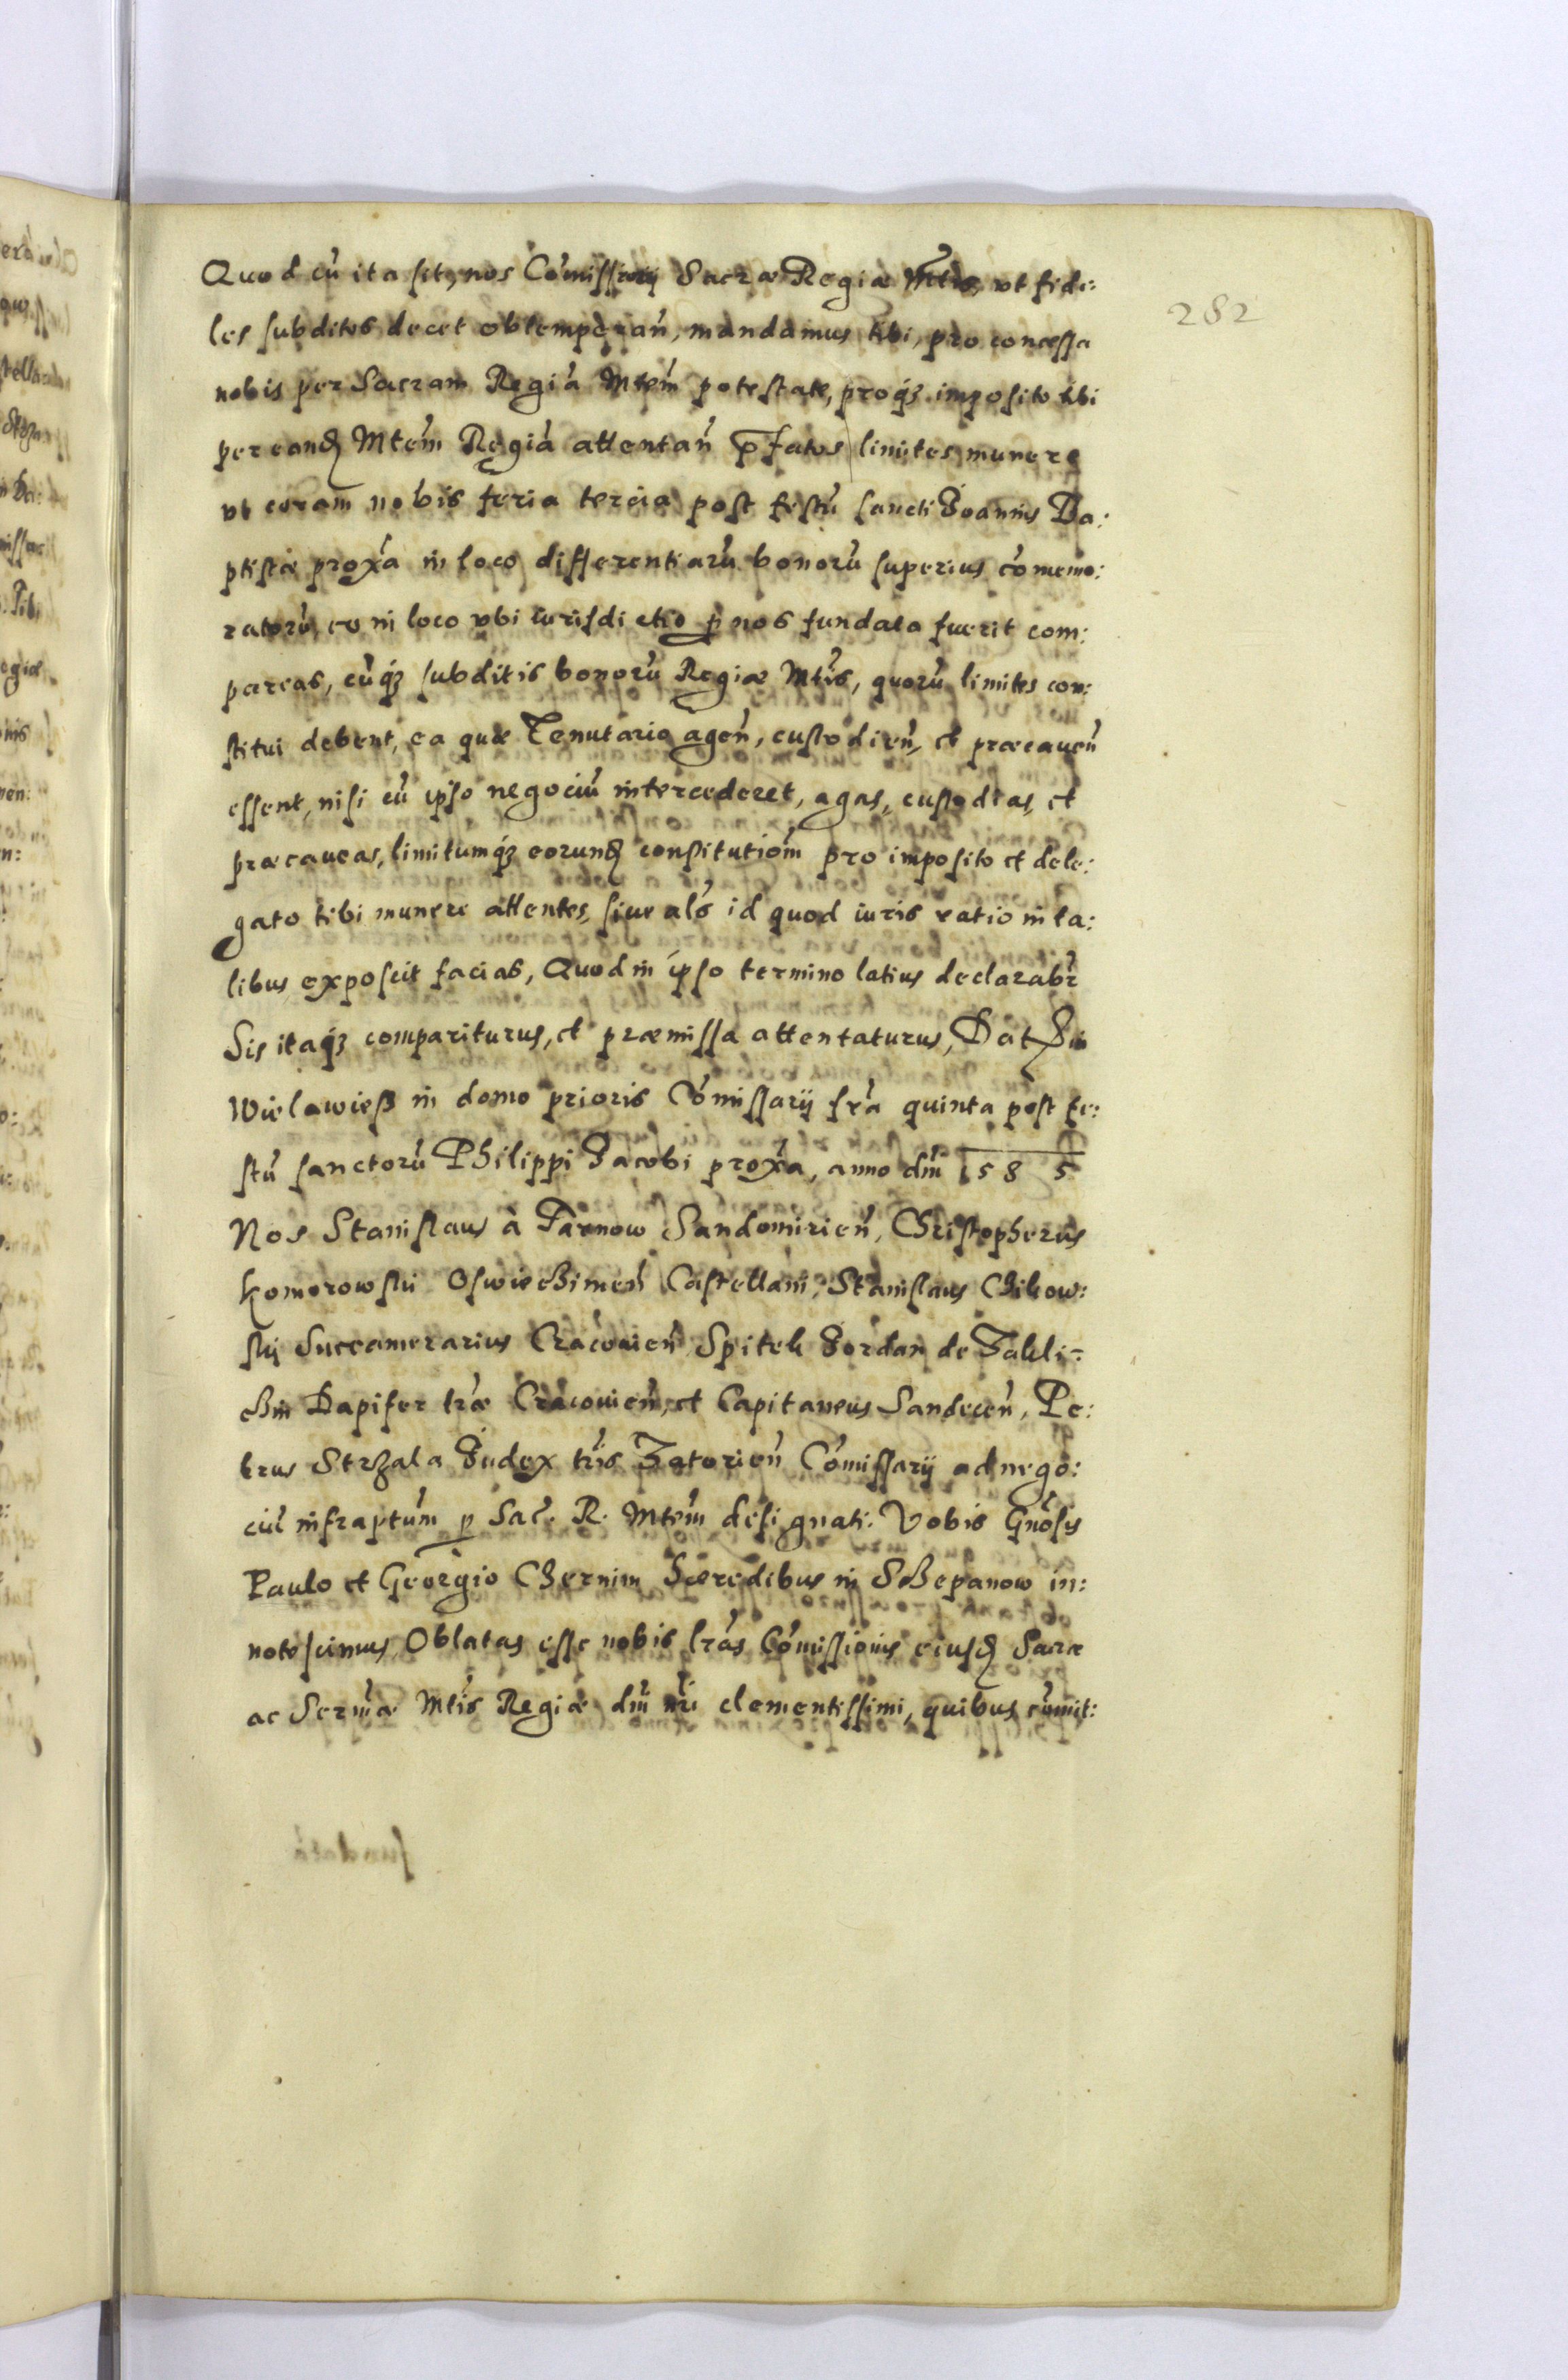 282
Quod cū ita sit, nos Cōmissarij Sacræ Regiæ Mtis, vt fide:
les subditos decet obtemperañ, mandamus tibi, pro concessa
nobis per Sacram Regiā Mtem̃ potestate, proq́ȝ imposito tibi
per eand̨ Mtem̃ Regiā attentañ p̄fatos limites munere
vt coram nobis feria tercia post festū sancti Joannis Ba:
ptistæ proxã in loco differentiarū bonorū superius cōmemo:
ratorū, eo in loco vbi iurisdictio ꝑ nos fundata fuerit com:
pareas, cūq́ȝ subditis bonorū Regiæ Mtis̃, quorū limites con:
stitui debent, ea quæ Tenutario ageñ, custodieñ, et præcaueñ
essent, nisi cū ipso negociū intercederet, agas, custodias, et
præcaueas, limitumq́ȝ eorund̨ constitutiom̃ pro imposito et dele:
gato tibi munere attentes, siue als̃ id quod iuris ratio in ta:
libus exposcit facias, Quod in ipso termino latius declarabr̃
Sis itaq́ȝ compariturus, et præmissa attentaturus, Dat̨ in
Wielawieß in domo prioris Cōmissarij frã quinta post fe:
stū sanctorū Philippi Jacobi proxã, anno dñi 1585
Nos Stanislaus à Tarnow Sandomirieñ, Christopherus
Komorowski Oswieczimeñ Castellani, Stanislaus Cikow:
ski Succamerarius Cracouieñ Spitek Jordan de Zakli:
czin Dapifer træ̃ Cracouieñ, et Capitaneus Sandeceñ, Pe:
trus Strzala Judex tris̃ Zatorieñ Cōmissarij ad nego:
ciū infraptum̃ ꝑ Sac̃. R. Mtem̃ designati: Vobis Gnosis̃
Paulo et Georgio Chernim hæredibus in Sczepanow in:
notescimus Oblatas esse nobis lrãs Cōmissionis eiusd̨ Sacræ
ac Sermæ̃ Mtis̃ Regiæ dñi nr̃i clementissimi, quibus cōmit: